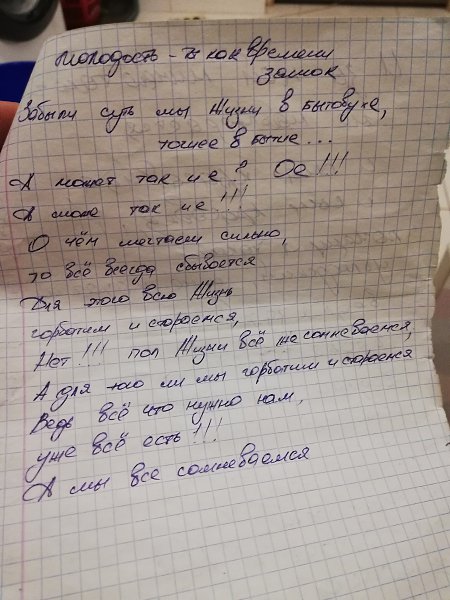 Молодость - ты как времени
замок
Забыли суть мы Жизни в бытовухе,
точнее в бытие...
А может так и е? Ое!!!
А може так и е!!!
О чём мечтаем сильно,
то всё всегда сбывается
Для этого всю Жизнь
горбатим и стараемся,
Нет!!! пол Жизни всё же сомневаемся,
А для того ли мы горбатим и стараемся
Ведь всё что нужно нам,
уже всё есть!!!
А мы все сомневаемся